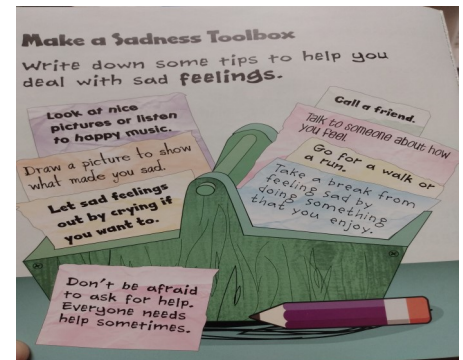 Make a Sadness Toolbox
Write down some tips to help you
deal with sad feelings.
Look at nice
pictures or listen
to happy music.
Draw a picture to show
what made you sad.
Let sad feelings
out by crying if
you want to.
Call a friend.
Talk to someone about how
you feel.
Go for a walk or
a run.
Take a break from
feeling sad by
doing something
that you enjoy.
Don't be afraid
to ask for help.
Everyone needs
help sometimes.